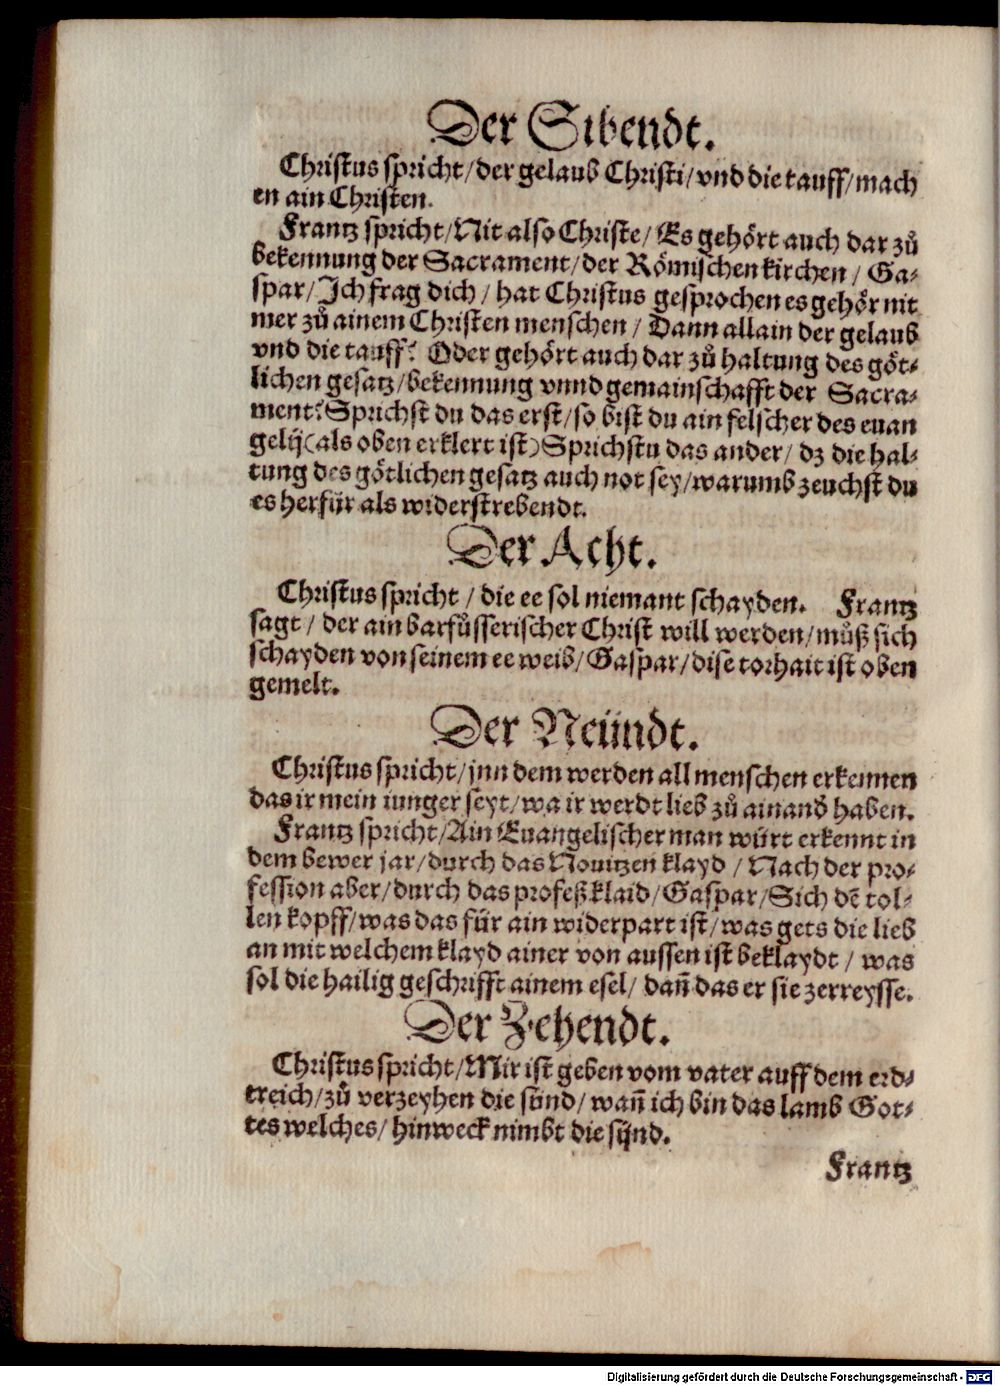 Der Sibendt.
Christus spricht/der gelaub Christi/vnd die tauff/mach
en ain Christen.
Frantz spricht/Nit also Christe/Es gehört auch dar zů
bekennung der Sacrament/der Römischen kirchen/Ga⸗
spar/Jch frag dich/hat Christus gesprochen es gehör nit
mer zů ainem Christen menschen/Dann allain der gelaub
vnd die tauff? Oder gehört auch dar zů haltung des göt⸗
lichen gesatz/bekennung vnnd gemainschafft der Sacra⸗
ment? Sprichst du das erst/so bist du ain felscher des euan
gelij(als oben erklert ist)Sprichstu das ander/dz die hal⸗
tung des götlichen gesatz auch not sey/warumb zeuchst du
es herfür als widerstrebendt.
Der Acht.
Christus spricht/die ee sol niemant schayden. Frantz
sagt/der ain barfůsserischer Christ will werden/můß sich
schayden von seinem ee weib/Gaspar/dise torhait ist oben
gemelt.
Der Neündt.
Christus spricht/jnn dem werden all menschen erkennen
das ir mein iunger seyt/wa ir werdt lieb zů ainand̛ haben.
Frantz spricht/Ain Euangelischer man würt erkennt in
dem bewer jar/durch das Nouitzen klayd/Nach der pro⸗
fession aber/durch das profeß klaid/Gaspar/Sich dē tol⸗
len kopff/was das für ain widerpart ist/was gets die lieb
an mit welchem klayd ainer von aussen ist beklaydt/was
sol die hailig geschrifft ainem esel/dañ das er sie zerreysse.
Der Zehendt.
Christus spricht/Mir ist geben vom vater auff dem erd⸗
treich/zů verzeyhen die sünd/wañ ich bin das lamb Got⸗
tes welches/hinweck nimbt die sünd.
Frantz
Digitalisierung gefördert durch die Deutsche Forschungsgemeinschaft - DFG